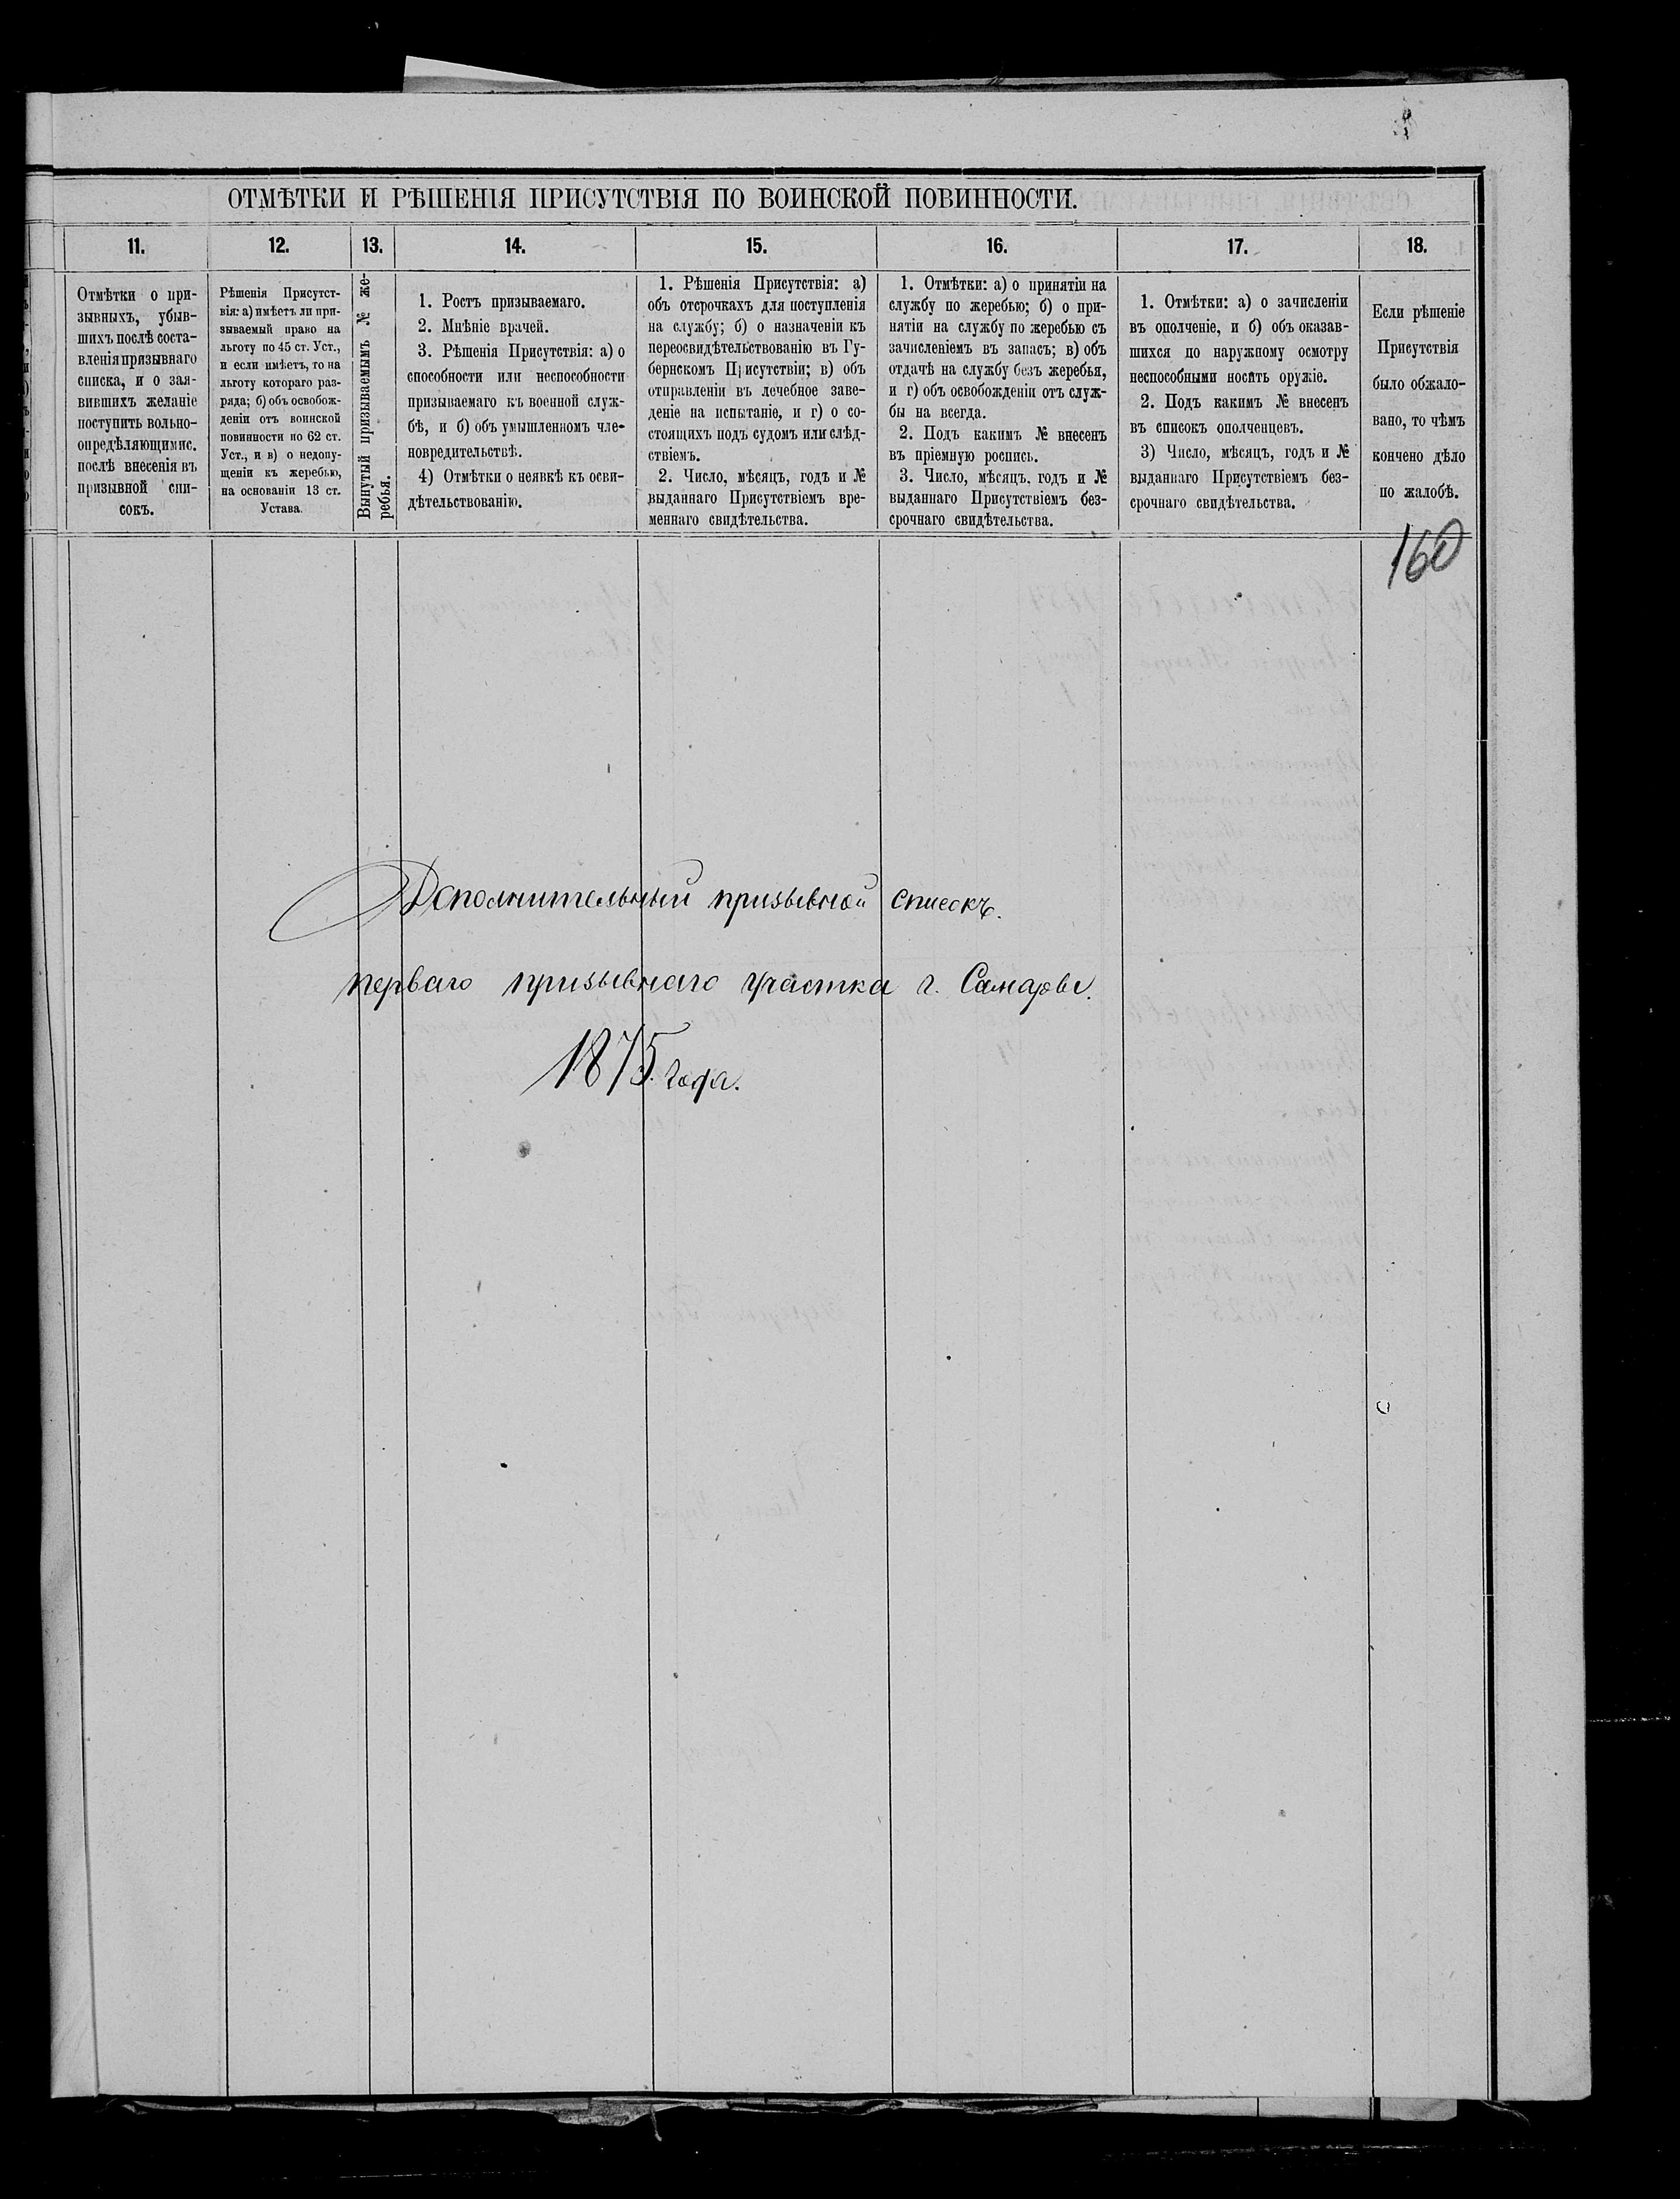 ОТМѢТКИ И РѢШЕНІЯ ПРИСУТСТВІЯ ПО ВОИНСКОЙ ПОВИННОСТИ.
11.
Отмѣтки о при-
зывныхъ, убыв-
шихъ послѣ соста-
вленія призывнаго
списка, и о зая-
вившихъ желаніе
поступить вольно-
опредѣляющимис.
послѣ внесенія въ
призывной спи-
сокъ.
12.
Рѣшенія Присутст-
вія: а) имѣетъ ли при-
зываемый право на
льготу по 45 ст. Уст.,
и если имѣетъ, то на
льготу котораго раз-
ряда; б) объ освобож-
деніи отъ воинской
повинности по 62 ст.
Уст., и в) о недопу-
щеніи къ жеребью,
на основаніи 13 ст.
Устава.
13.
Вынутый призываемымъ № же-
ребья.
14.
1. Ростъ призываемаго.
2. Мнѣніе врачей.
3. Рѣшенія Присутствія: а) о
способности или неспособности
призываемаго къ военной служ-
бѣ, и б) объ умышленномъ чле-
новредительствѣ.
4) Отмѣтки о неявкѣ къ осви-
дѣтельствованію.
15.
1. Рѣшенія Присутствія: а)
объ отсрочкахъ для поступленія
на службу; б) о назначеніи къ
переосвидѣтельствованію въ Гу-
бернскомъ Присутствіи; в) объ
отправленіи въ лечебное заве-
деніе на испытаніе, и г) о со-
стоящихъ подъ судомъ или слѣд-
ствіемъ.
2. Число, мѣсяцъ, годъ и №
выданнаго Присутствіемъ вре-
меннаго свидѣтельства.
16.
1. Отмѣтки: а) о принятіи на
службу по жеребью; б) о при-
нятіи на службу по жеребью съ
зачисленіемъ въ запасъ; в) объ
отдачѣ на службу безъ жеребья,
и г) объ освобожденіи отъ служ-
бы на всегда.
2. Подъ какимъ № внесенъ
въ пріемную роспись.
3. Число, мѣсяцъ, годъ и №
выданнаго Присутствіемъ без-
срочнаго свидѣтельства.
17.
1. Отмѣтки: а) о зачисленіи
въ ополченіе, и б) объ оказав-
шихся по наружному осмотру
неспособными носить оружіе.
2. Подъ какимъ № внесенъ
въ списокъ ополченцевъ.
3) Число, мѣсяцъ, годъ и №
выданнаго Присутствіемъ без-
срочнаго свидѣтельства.
18.
Если рѣшеніе
Присутствія
было обжало-
вано, то чѣмъ
кончено дѣло
по жалобѣ.
160
Дополнительный призывной списокъ.
перваго призывнаго участка г. Самары.
1875. года.